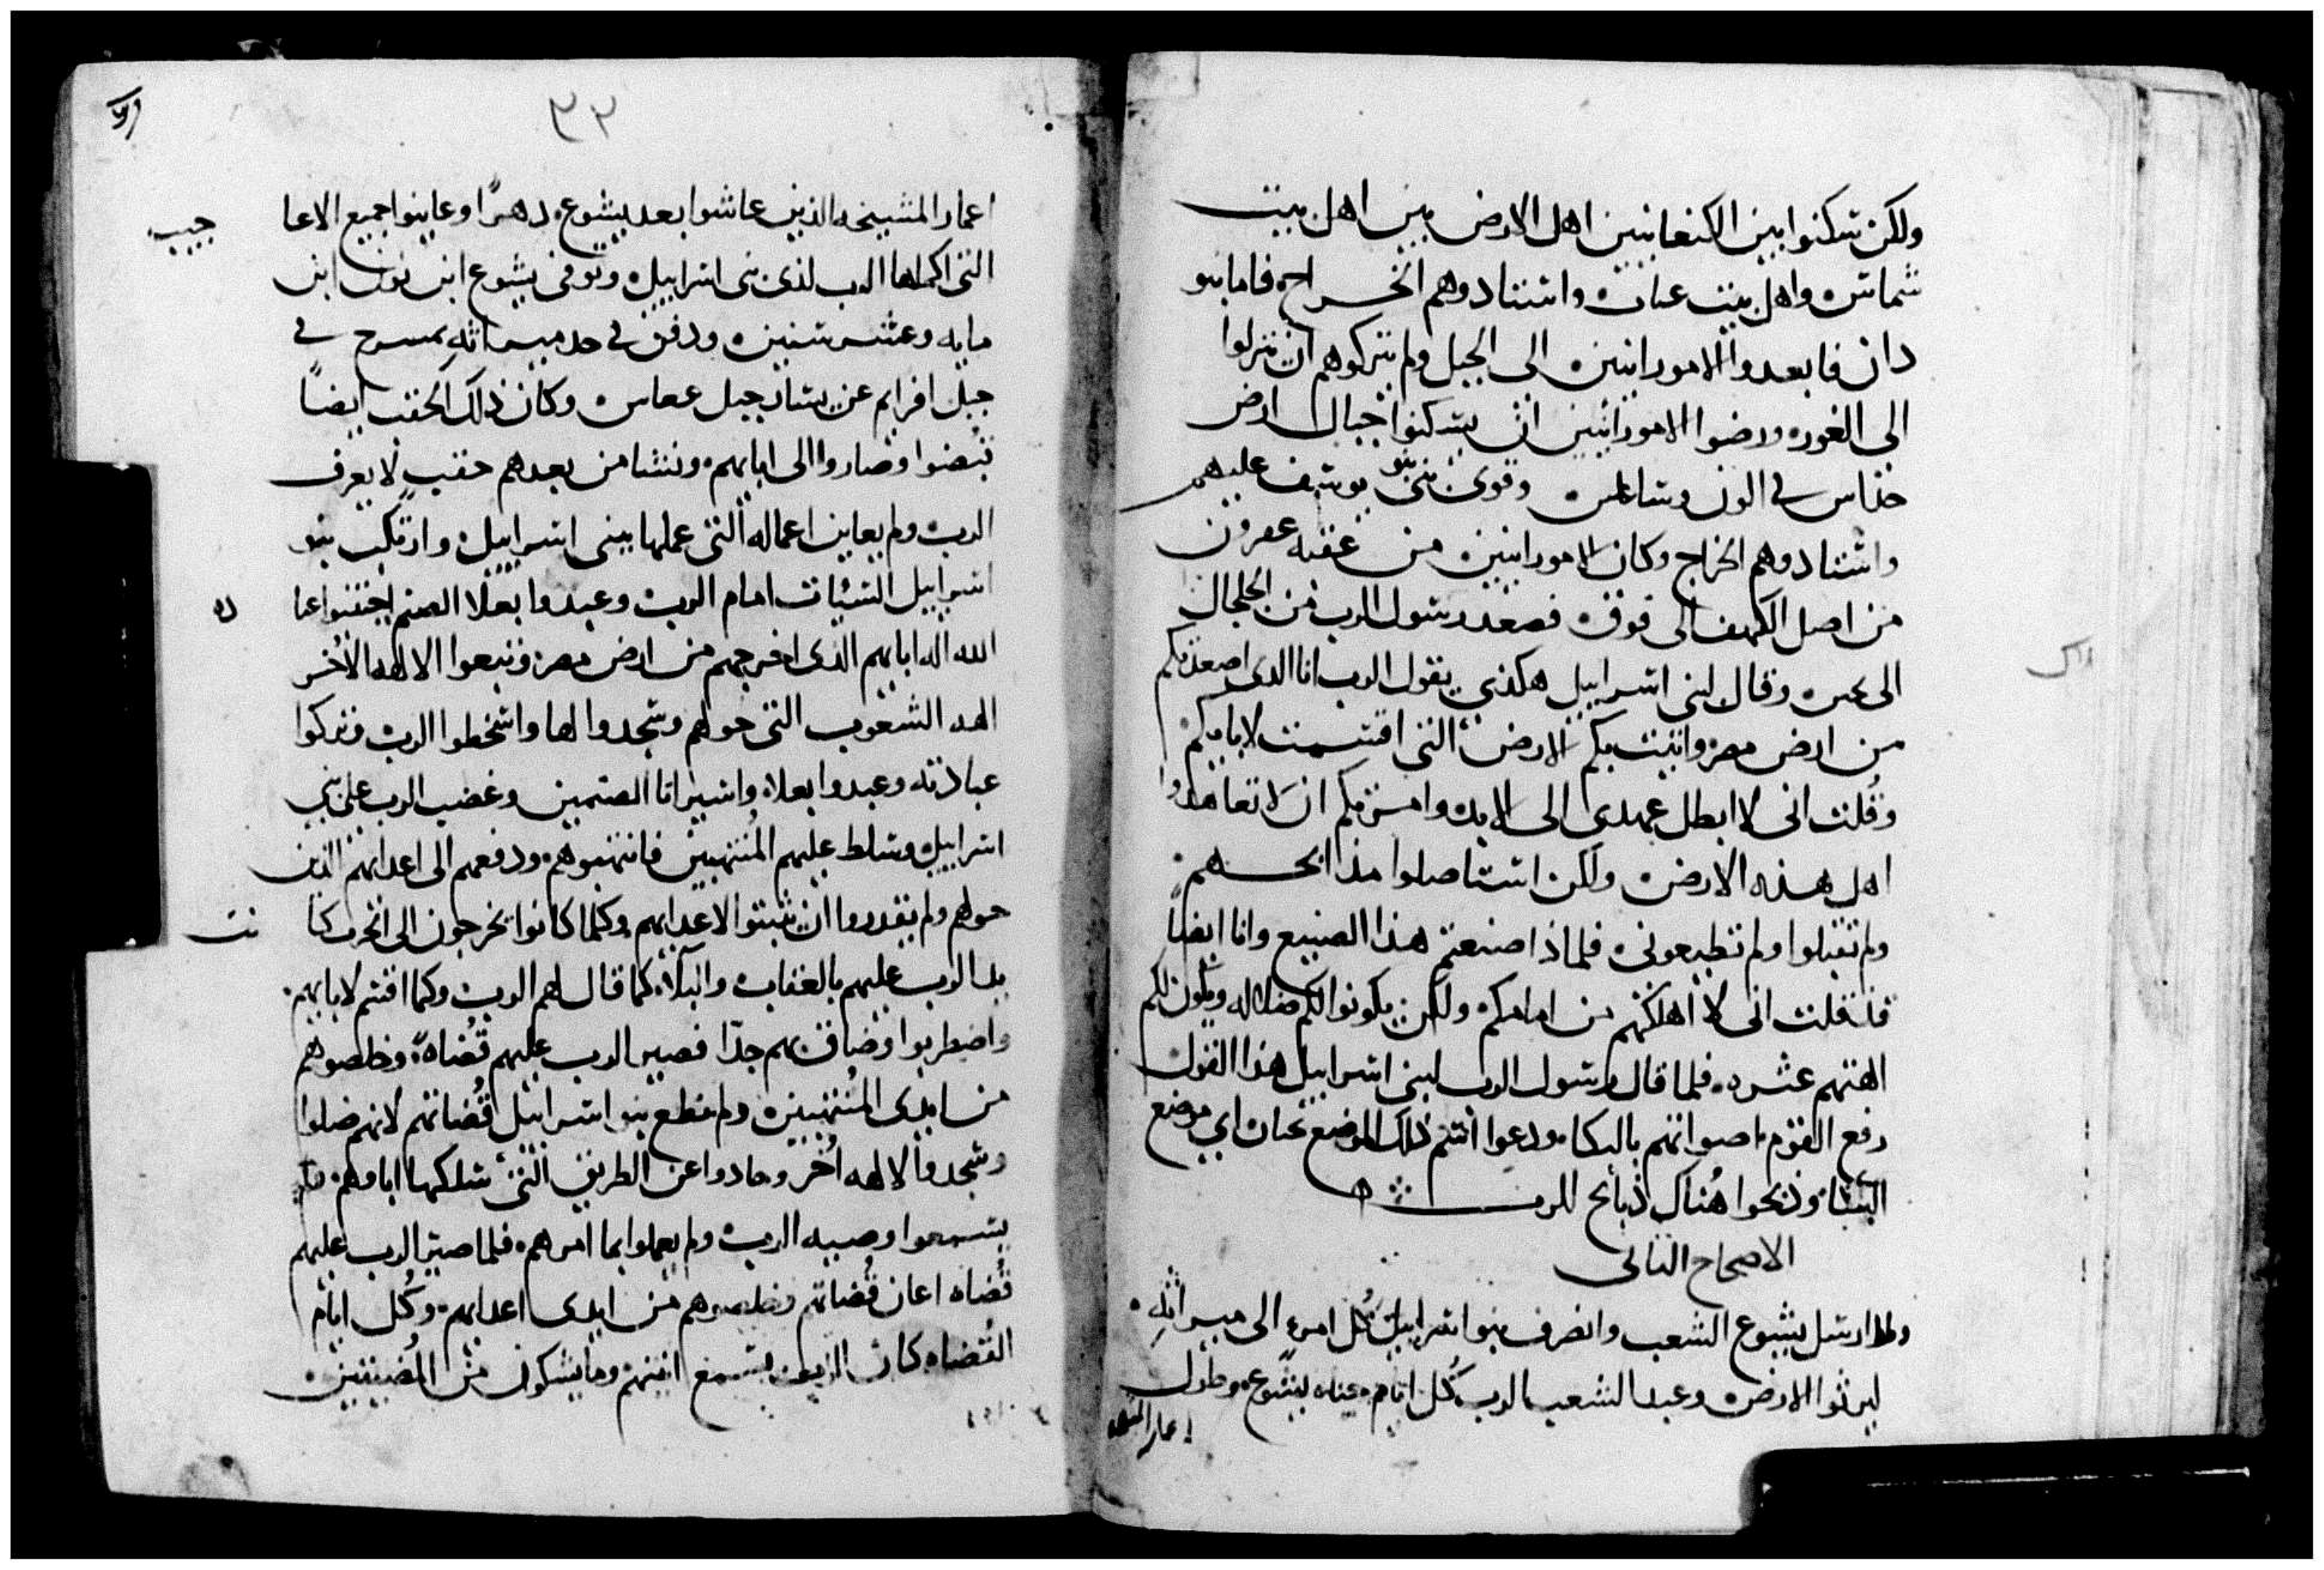 ولكن سكنوا بين الكنعانيين اهل الارض بين اهل بيت
شماس واهل بيت عناث واستادوهم الخراج فاما بنو
دان فابعدوا الامورانيين الى الجبل ولم يتركوهم ان ينزلوا
الى الغور ورضوا الامورانيين ان يسكنوا جبال ارض
حناس في الون وسالمس وقوى بنو يوسف عليهم
واستادوهم الخراج وكان الامورانيين من عقبه عقرون
من اصل الكهف الى فوق فصعد رسول الرب من الجلجال
الى وقال لبني اسراييل هكذى يقول الرب انا الذى اصعدتكم
من ارض مصر واتيت بكم الارض التى اقتسمت لابايكم
وقلت انى لا ابطل عهدى الى الابد وامرتكم ان لا تعاهدوا
اهل هذه الارض ولكن استاصلوا مذابحهم
ولم تقبلوا ولم تطيعونى فلماذا صنعتم هذا الصنيع وانا ايضاً
قد قلت انى لا اهلكهم من امامكم ولكن يكونوا لكم ضلاله ويكون لكم
الهتهم عثره فلما قال رسول الرب لبنى اسراييل هذا القول
رفع القوم اصواتهم بالبكاء ودعوا اسم ذلك الموضع عنان اي موضع
البكاء وذبحوا هُناك ذبائح للرب
الاصحاح الثانى
ولما ارسل يشوع الشعب وانصرف بنو اسراييل كُل امرء الى ميراثه
ليرثوا الارض وعبد الشعب الرب كُل ايام حياه يشوع وطول
اعمار المشيخه
٣٢
اعمار المشيخه الذين عاشوا بعد يشوع دهراً وعاينوا جميع الاعا
التى اكملها الرب لذى بنى اسراييل وتوفى يشوع ابن نون ابن
مايه وعشر سنين ودفن في حد ميراثه بمسرح في
جبل افرايم عن يسار جبل عماس وكان ذلك الحقب ايضاً
قبضوا وصاروا الى ابايهم ونشا من بعدهم حقب لا يعرف
الرب ولم يعاين اعماله التى عملها ببنى اسراييل وارتكب بنو
اسراييل السيئات امام الرب وعبدوا بعلا الصنم اجتنبوا عبا
الله اله ابايهم الذى اخرجهم من ارض مصر وتبعوا الالهه الاُخر
الهه الشعوب التى حولهم وسجدوا لها واسخطوا الرب وتركوا
عبادته وعبدوا بعلا واستيرانا الصنمين وغضب الرب على بني
اسراييل وسلط عليهم المُنتهبين فانتهبوهم ودفعهم الى اعدايهم الذين
حولهم ولم يقدروا ان يثبتوا لاعدايهم وكلما كانوا يخرجون الى الحرب كا
يد الرب عليهم بالعقاب والبلاء كما قال لهم الرب وكما اقسم لابايهم
واضطربوا وضاق بهم جدّا فصير الرب عليهم قُضاة وخلصوهم
من ايدى المُنتهبين ولم يطع بنو اسراييل قُضاتهم لانهم ضلوا
وسجدوا لالهه اُخر وحادوا عن الطريق التى سلكها اباوهم ولم
يسمعوا وصيه الرب ولم يعملوا بما امرهم فلما صير الرب عليهم
قُضاه اعان قُضاتهم وخلصوهم من ايدى اعدايهم وكُل ايام
القُضاه كان الرب يسمع انينهم وما يشكون من المُضيقين